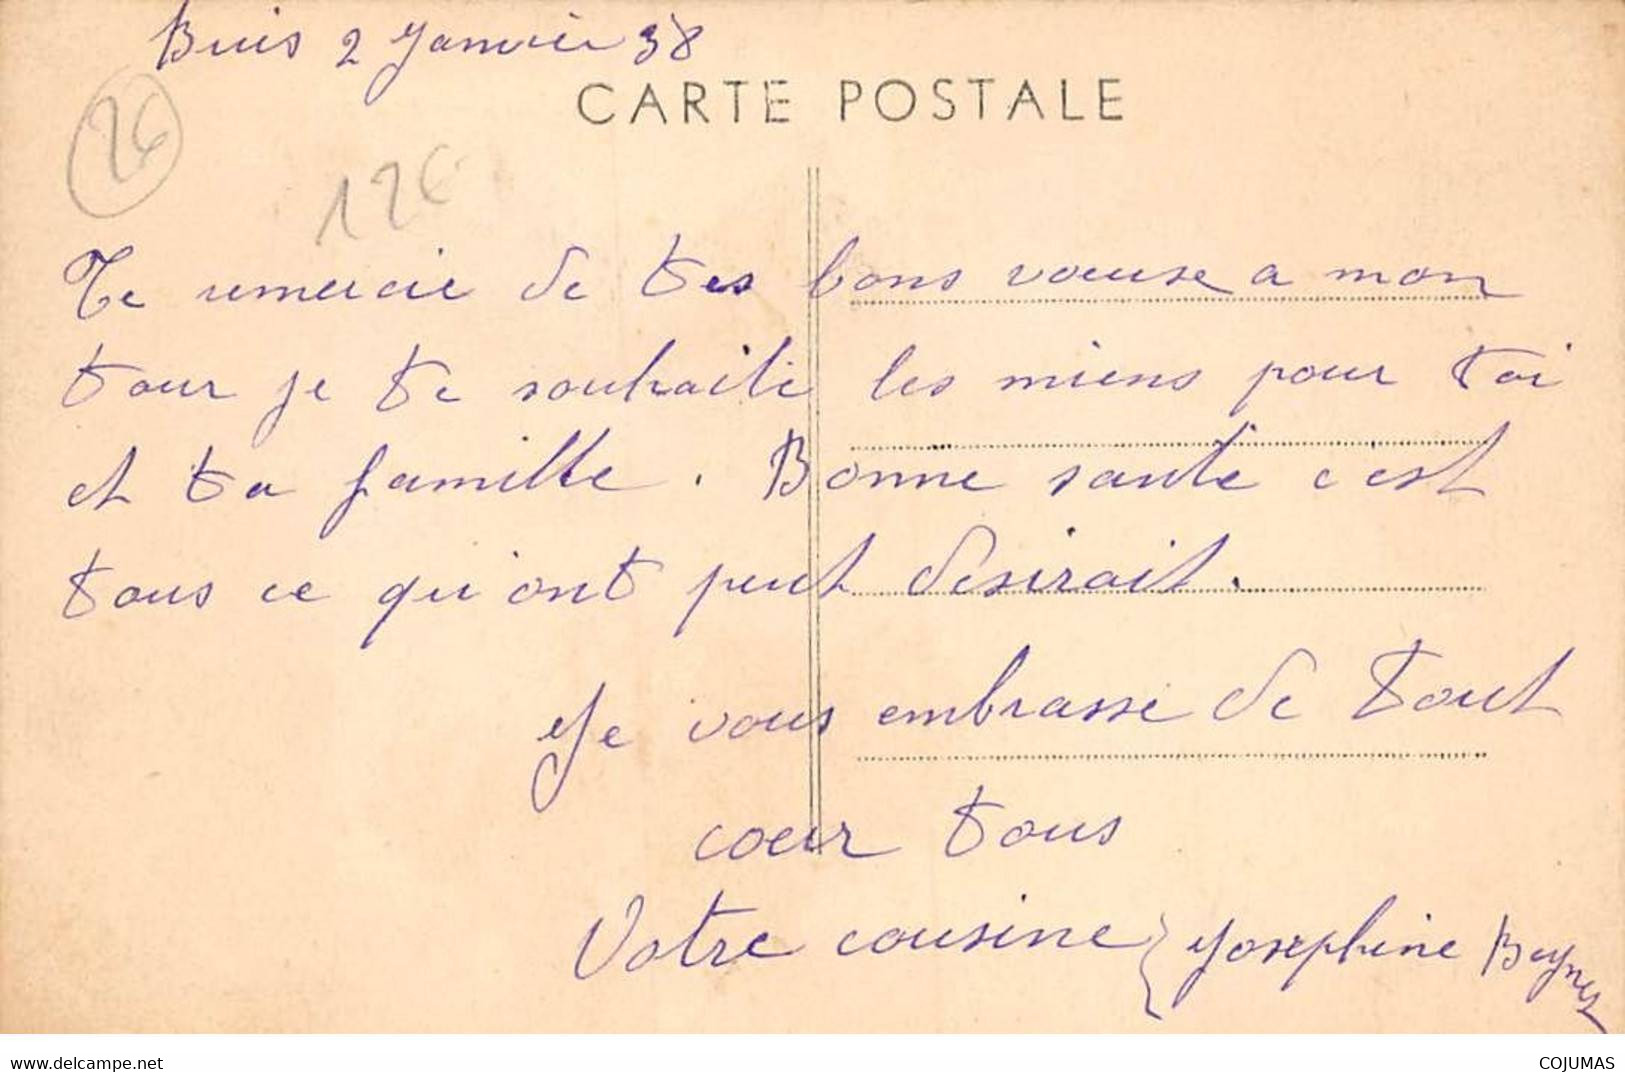 Buis 2 Janvier 38
CARTE POSTALE
26
12€
Te remercie de tes bons voeuse a mon
tour je te souhaite les miens pour toi
et ta famille. Bonne santé c est
tous ce qu'ont peut desirait.
Je vous embrasse de tout
coeur tous
Votre cousine Josephine
delcampe.net
COJUMAS